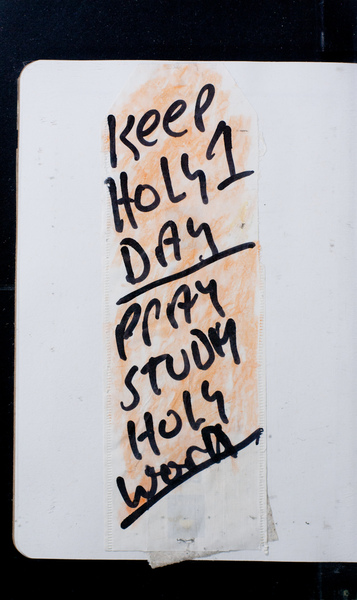 Keep
HOLY 1
DAY
PrAY
STUDY
HOLY
WorD